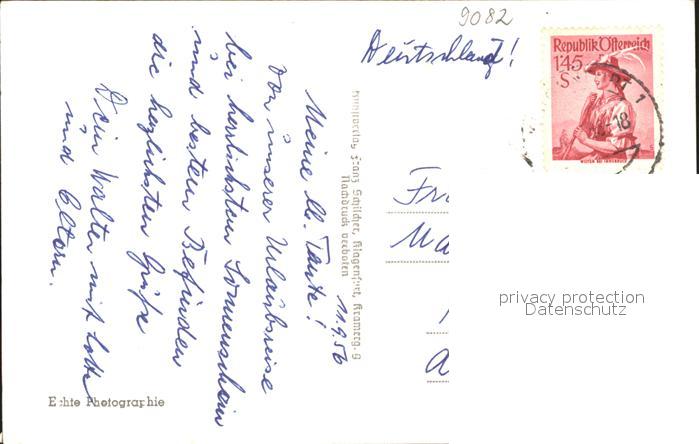 9082
Deutschland!
Republik Österreich
1'45
S
WILTEN BEI INNSBRUCK
11.9.56
Meine lb. Tante!
Von unserer Urlaubsreise
bei herrlichstem Sonnenschein
und bestem Befinden
die herzlichsten Grüße
Dein Walter mit Lotte
und Eltern.
Franz Schilcher, Klagenfurt, Kramerg. 9
Nachdruck verboten
Fr
Ma
privacy protection
Datenschutz
Echte Photographie